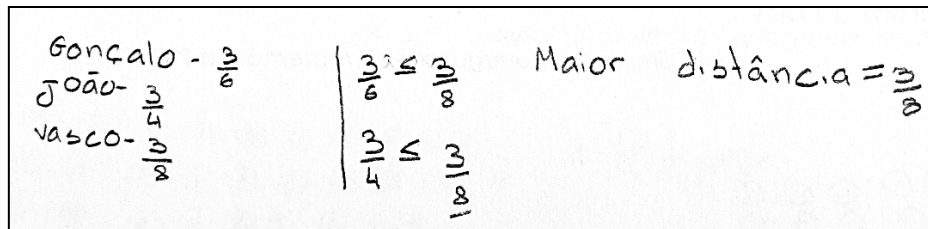 Gonçalo - 3/6
João - 3/4
Vasco - 3/8
3/6 ≤ 3/8
3/4 ≤ 3/8
Maior distância = 3/8